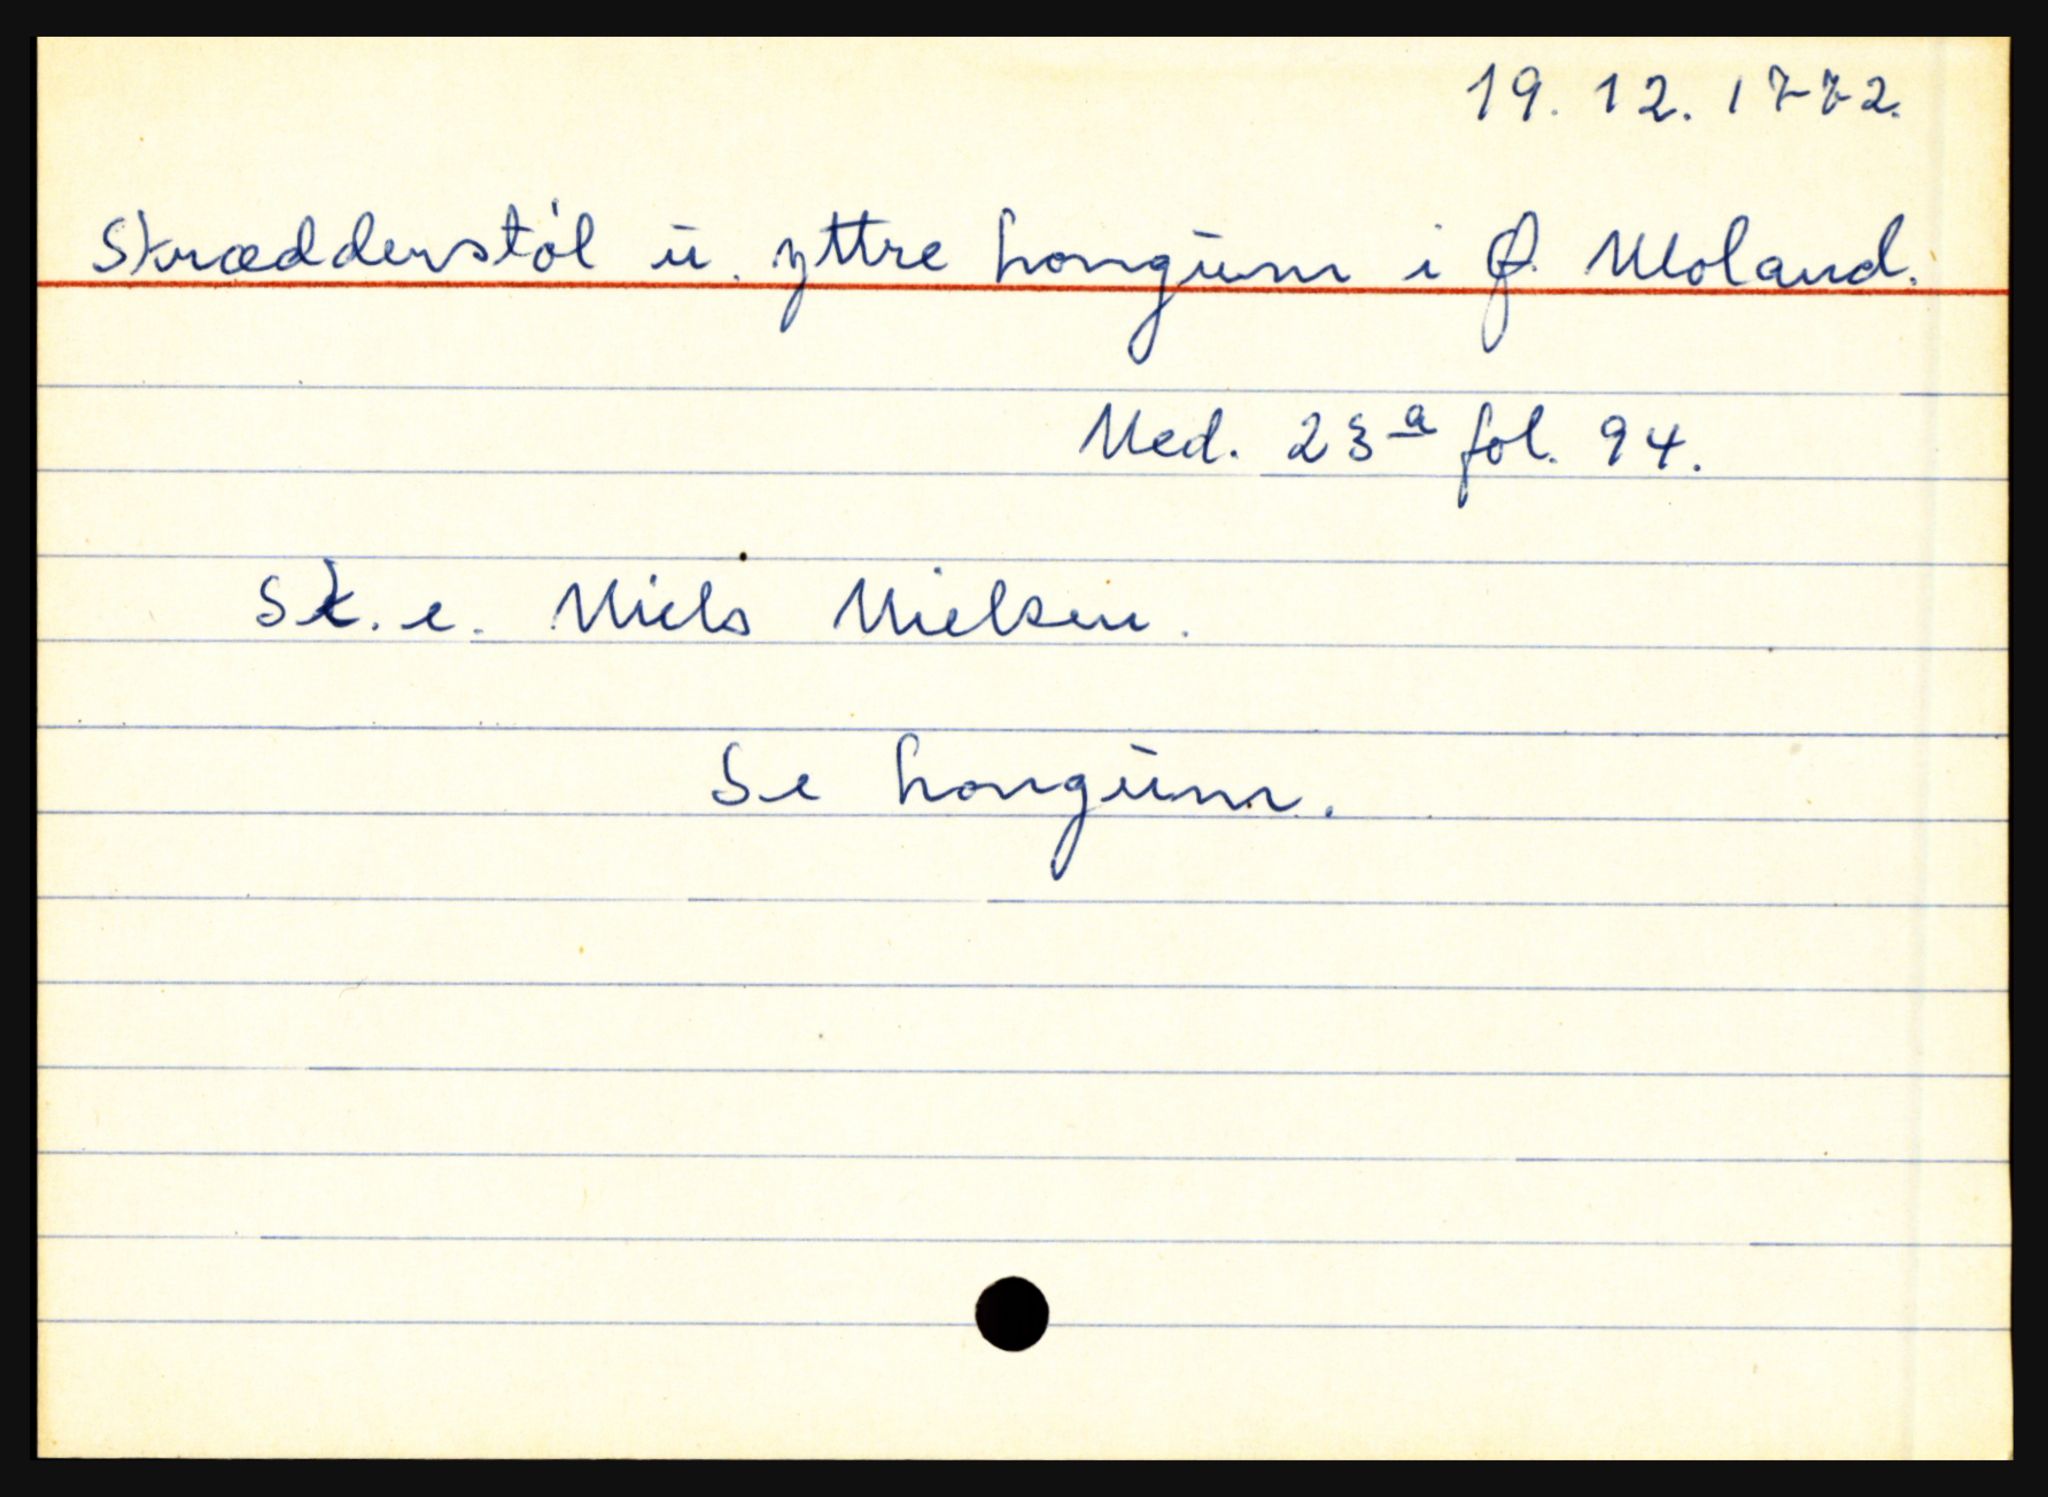 19. 12. 1772.
Skrædderstøl u. yttre Longum i Ø. Moland.
Ned. 23a fol. 94.
Sk. e. Niels Nielsen.
Se Longum.